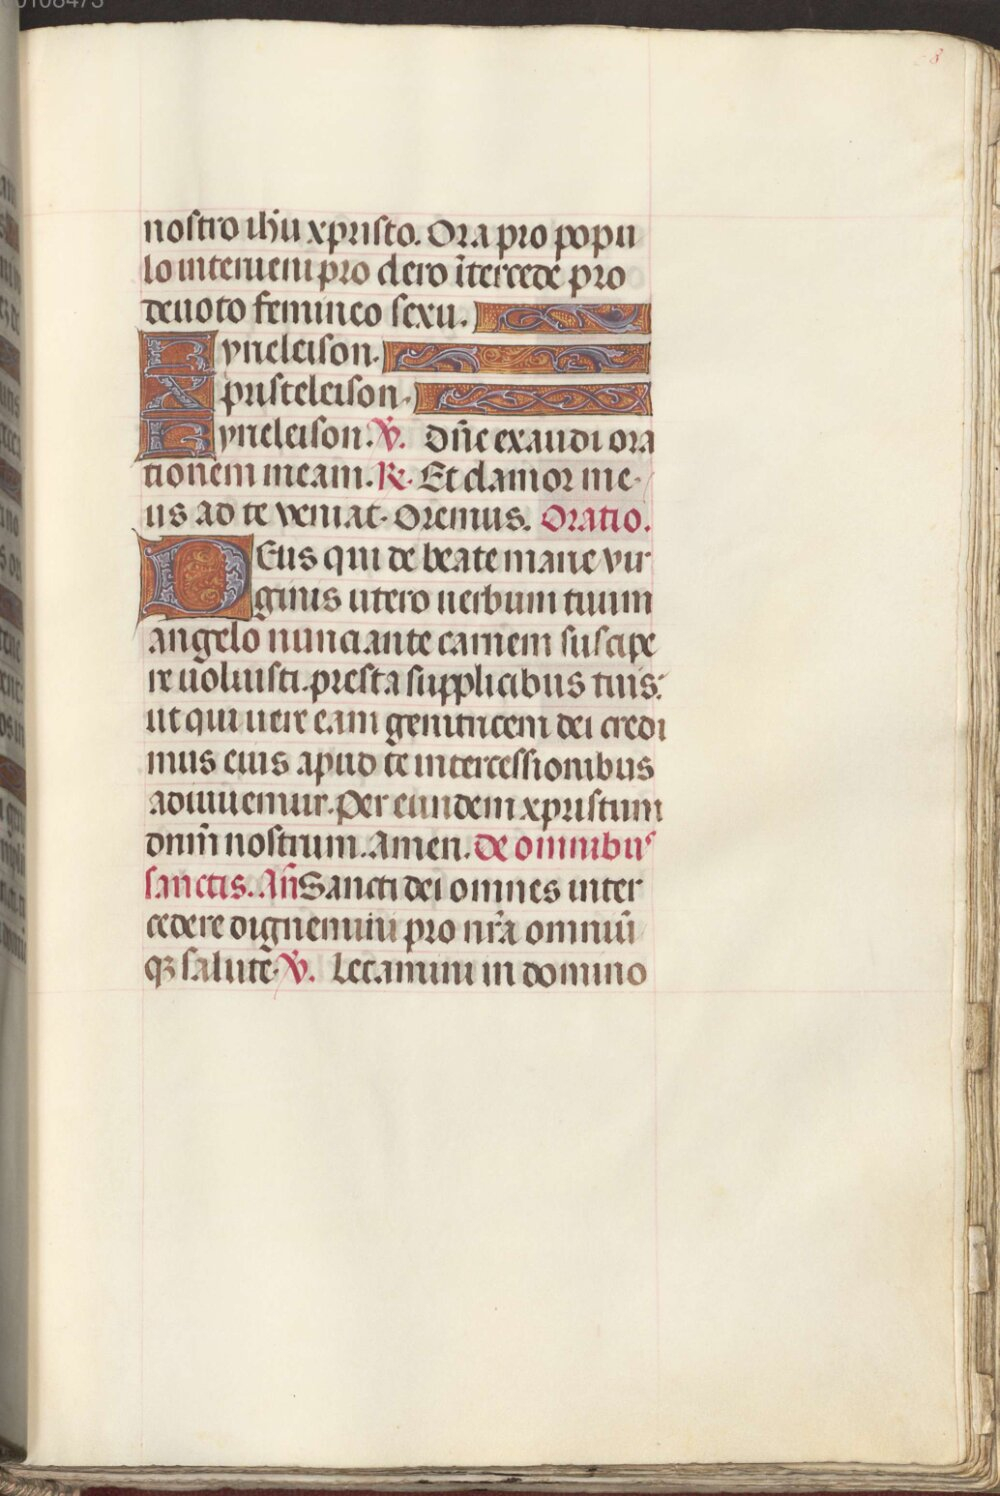 nostro ihu xpristo. Ora pro popu
lo interueni pro clero ītercede pro
deuoto femineo sexu.
Kyrieleison.
Xpristeleison.
Kyrieleison. V. Dn̄e exaudi ora
tionem meam. R. Et clamor me
us ad te veniat. Oremus. Oratio.
DEus qui de beate marie vir
ginis utero uerbum tuum
angelo nunciante carnem suscipe
re uoluisti. presta supplicibus tuis:
ut qui uere eam genitricem dei credi
mus eius apud te intercessionibus
adiuuemur. Per eundem xpristum
dnm̄ nostrum. Amen. de omnibus
sanctis. An̄ Sancti dei omnes inter
cedere dignemini pro nr̄a omniū
qꝫ salutē. V. Letamini in domino